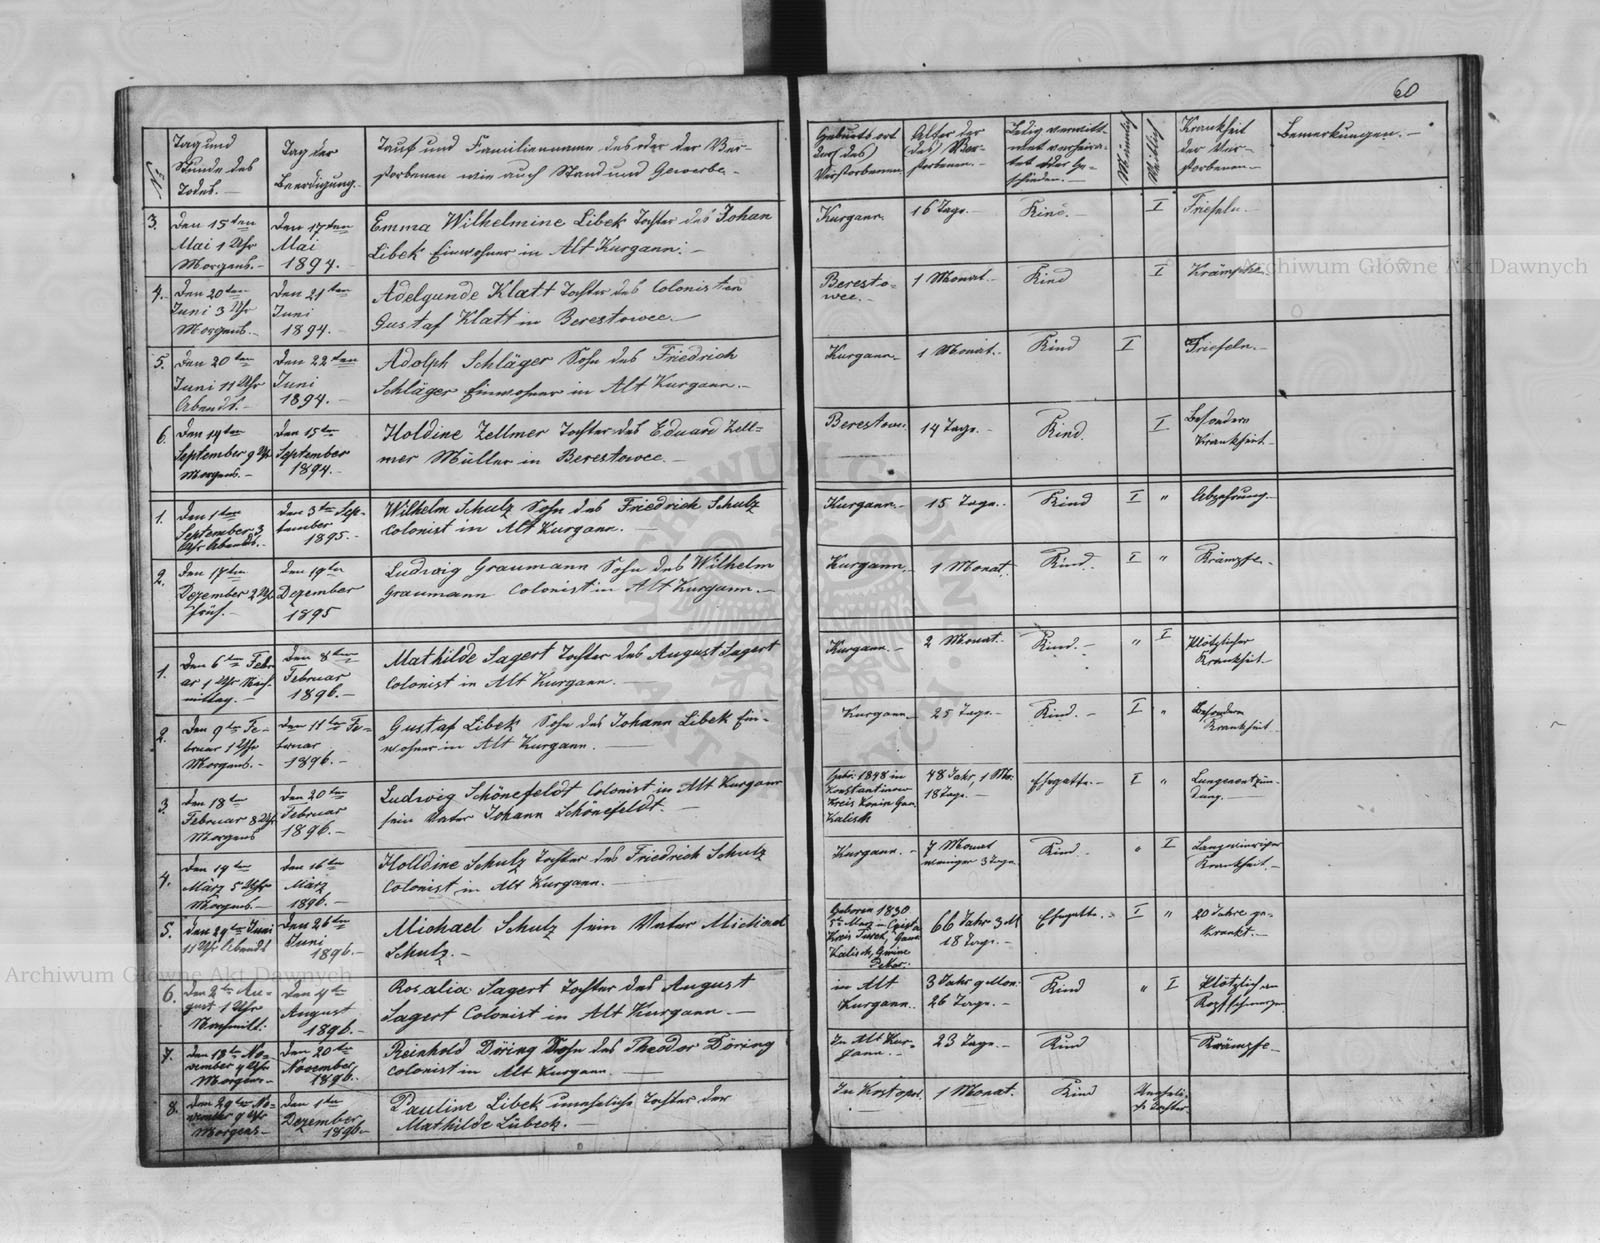 60
No
Tag und
Stunde des
Todes.—
Tag der
Beerdigung.—
Tauf und Familienname des oder der Ver-
storbenen wie auch Stand und Gewerbe.—
Geburtsort
der (des)
Verstorbenen.
Alter der
(des) Ver-
storbenen.—
Ledig verwitt-
wet verheira-
tet oder Ge-
schieden.—
Männlich
Weiblich
Krankheit
der Ver-
storbenen—
Bemerkungen.—
3.
Den 15ten
Mai 1 Uhr
Morgens.—
Den 17ten
Mai
1894.—
Emma Wilhelmine Libek Tochter des Johan
Libek Einwohner in Alt Kurgann.—
Kurgann.
16 Tage.—
Kind.—
I
Friefeln.—
4.
Den 20ten
Juni 3 Uhr
Morgens.—
Den 21ten
Juni
1894.—
Adelgunde Klatt Tochter des Colonisten
Gustaf Klatt in Berestowec.—
Beresto-
wec.—
1 Monat.—
Kind
I
Krämpfe
5.
Den 20ten
Juni 11 Uhr
Abends.—
Den 22ten
Juni
1894.—
Adolph Schläger Sohn des Friedrich
Schläger Einwohner in Alt Kurgann.—
Kurgann—
1 Monat.—
Kind
I
Friefeln.—
6.
Den 14ten
September 9 Uhr
Morgens.—
Den 15ten
September
1894.—
Holdine Zellmer Tochter des Eduard Zell=
mer Müller in Berestowec.—
Berestowec
14 Tage.—
Kind.
I
Besondere
Krankheit—
1.
Den 1ten
September 3
Uhr Abends.
Den 3ten Sep-
tember
1895.—
Wilhelm Schulz Sohn des Friedrich Schulz
Colonist in Alt Kurgann.—
Kurgann—
15 Tage.
Kind
I
"
Abzehrung—
2.
Den 17ten
Dezember 2 Uhr
Früh.—
Den 19ten
Dezember
1895
Ludwig Graumann Sohn des Wilhelm
Graumann Colonist in Alt Kurgann.—
Kurgann.—
1 Monat.
Kind.
I
"
Krämpfe.
1.
Den 6ten Febru-
ar 1 Uhr Nach-
mittag.—
Den 8ten
Februar
1896.—
Mathilde Sagert Tochter des August Sagert
Colonist in Alt Kurgann.—
Kurgann.—
2 Monat.
Kind.—
"
I
Plötzlicher
Krankheit—
2.
Den 9ten Fe-
bruar 1 Uhr
Morgens.—
Den 11ten Fe-
bruar
1896.—
Gustaf Libek Sohn des Johann Libek Ein-
wohner in Alt Kurgann.—
Kurgann—
25 Tage.—
Kind.—
I
"
Besondere
Krankheit
3.
Den 18ten
Februar 8 Uhr
Morgens
Den 20ten
Februar
1896.—
Ludwig Schönefeldt Colonist in Alt Kurgann
sein Vater Johann Schönefeldt.—
Gebr. 1848 in
Konstantinow
Kreis Konin Gou.
Kalisch
48 Jahr, 1 Mo.
18 Tage.—
Ehegatte.—
I
"
Lungenentzün-
dung.—
4.
Den 14ten
März 5 Uhr
Morgens.—
Den 16ten
März
1896.—
Holldine Schulz Tochter des Friedrich Schulz
Colonist in Alt Kurgann.—
Kurgann.—
7 Monat
weniger 3 Tage
Kind.
"
I
Langwieriger
Krankheit.—
5.
Den 24ten Juni
11 Uhr Abends
Den 26ten
Juni
1896.—
Michael Schulz sein Vater Michael
Schulz.—
Geboren 1830
5ten März
Kreis Turek, Gou.
Kalisch, Gmine
66 Jahr 3 M
18 Tage.—
Ehegatte.—
I
"
20 Jahre ge-
krankt.—
6.
Den 2ten Au-
gust 1 Uhr
Nachmitt.
Den 4ten
August
1896.—
Rosalia Sagert Tochter des August
Sagert Colonist in Alt Kurgann.—
in Alt
Kurgann.
3 Jahr 9 Mon.
26 Tage.—
Kind
"
I
Plötzlichen
Kopfschmerzen
7.
Den 18ten No-
vember 4 Uhr
Morgens—
Den 20ten
November
1896.
Reinhold Döring Sohn des Theodor Döring
Colonist in Alt Kurgann.—
In Alt Kur-
gann.—
23 Tage.—
Kind
Krämpfe—
8.
Den 29ten No-
vember 9 Uhr
Morgens—
Den 1ten
Dezember
1896.—
Pauline Libek uneheliche Tochter der
Mathilde Lübeck.—
In Kostopol.
1 Monat.
Kind
Unehli-
che Tochter
Archiwum Główne Akt Dawnych
Archiwum Główne Akt Dawnych
ARCHIWUM GŁÓWNE AKT DAWNYCH